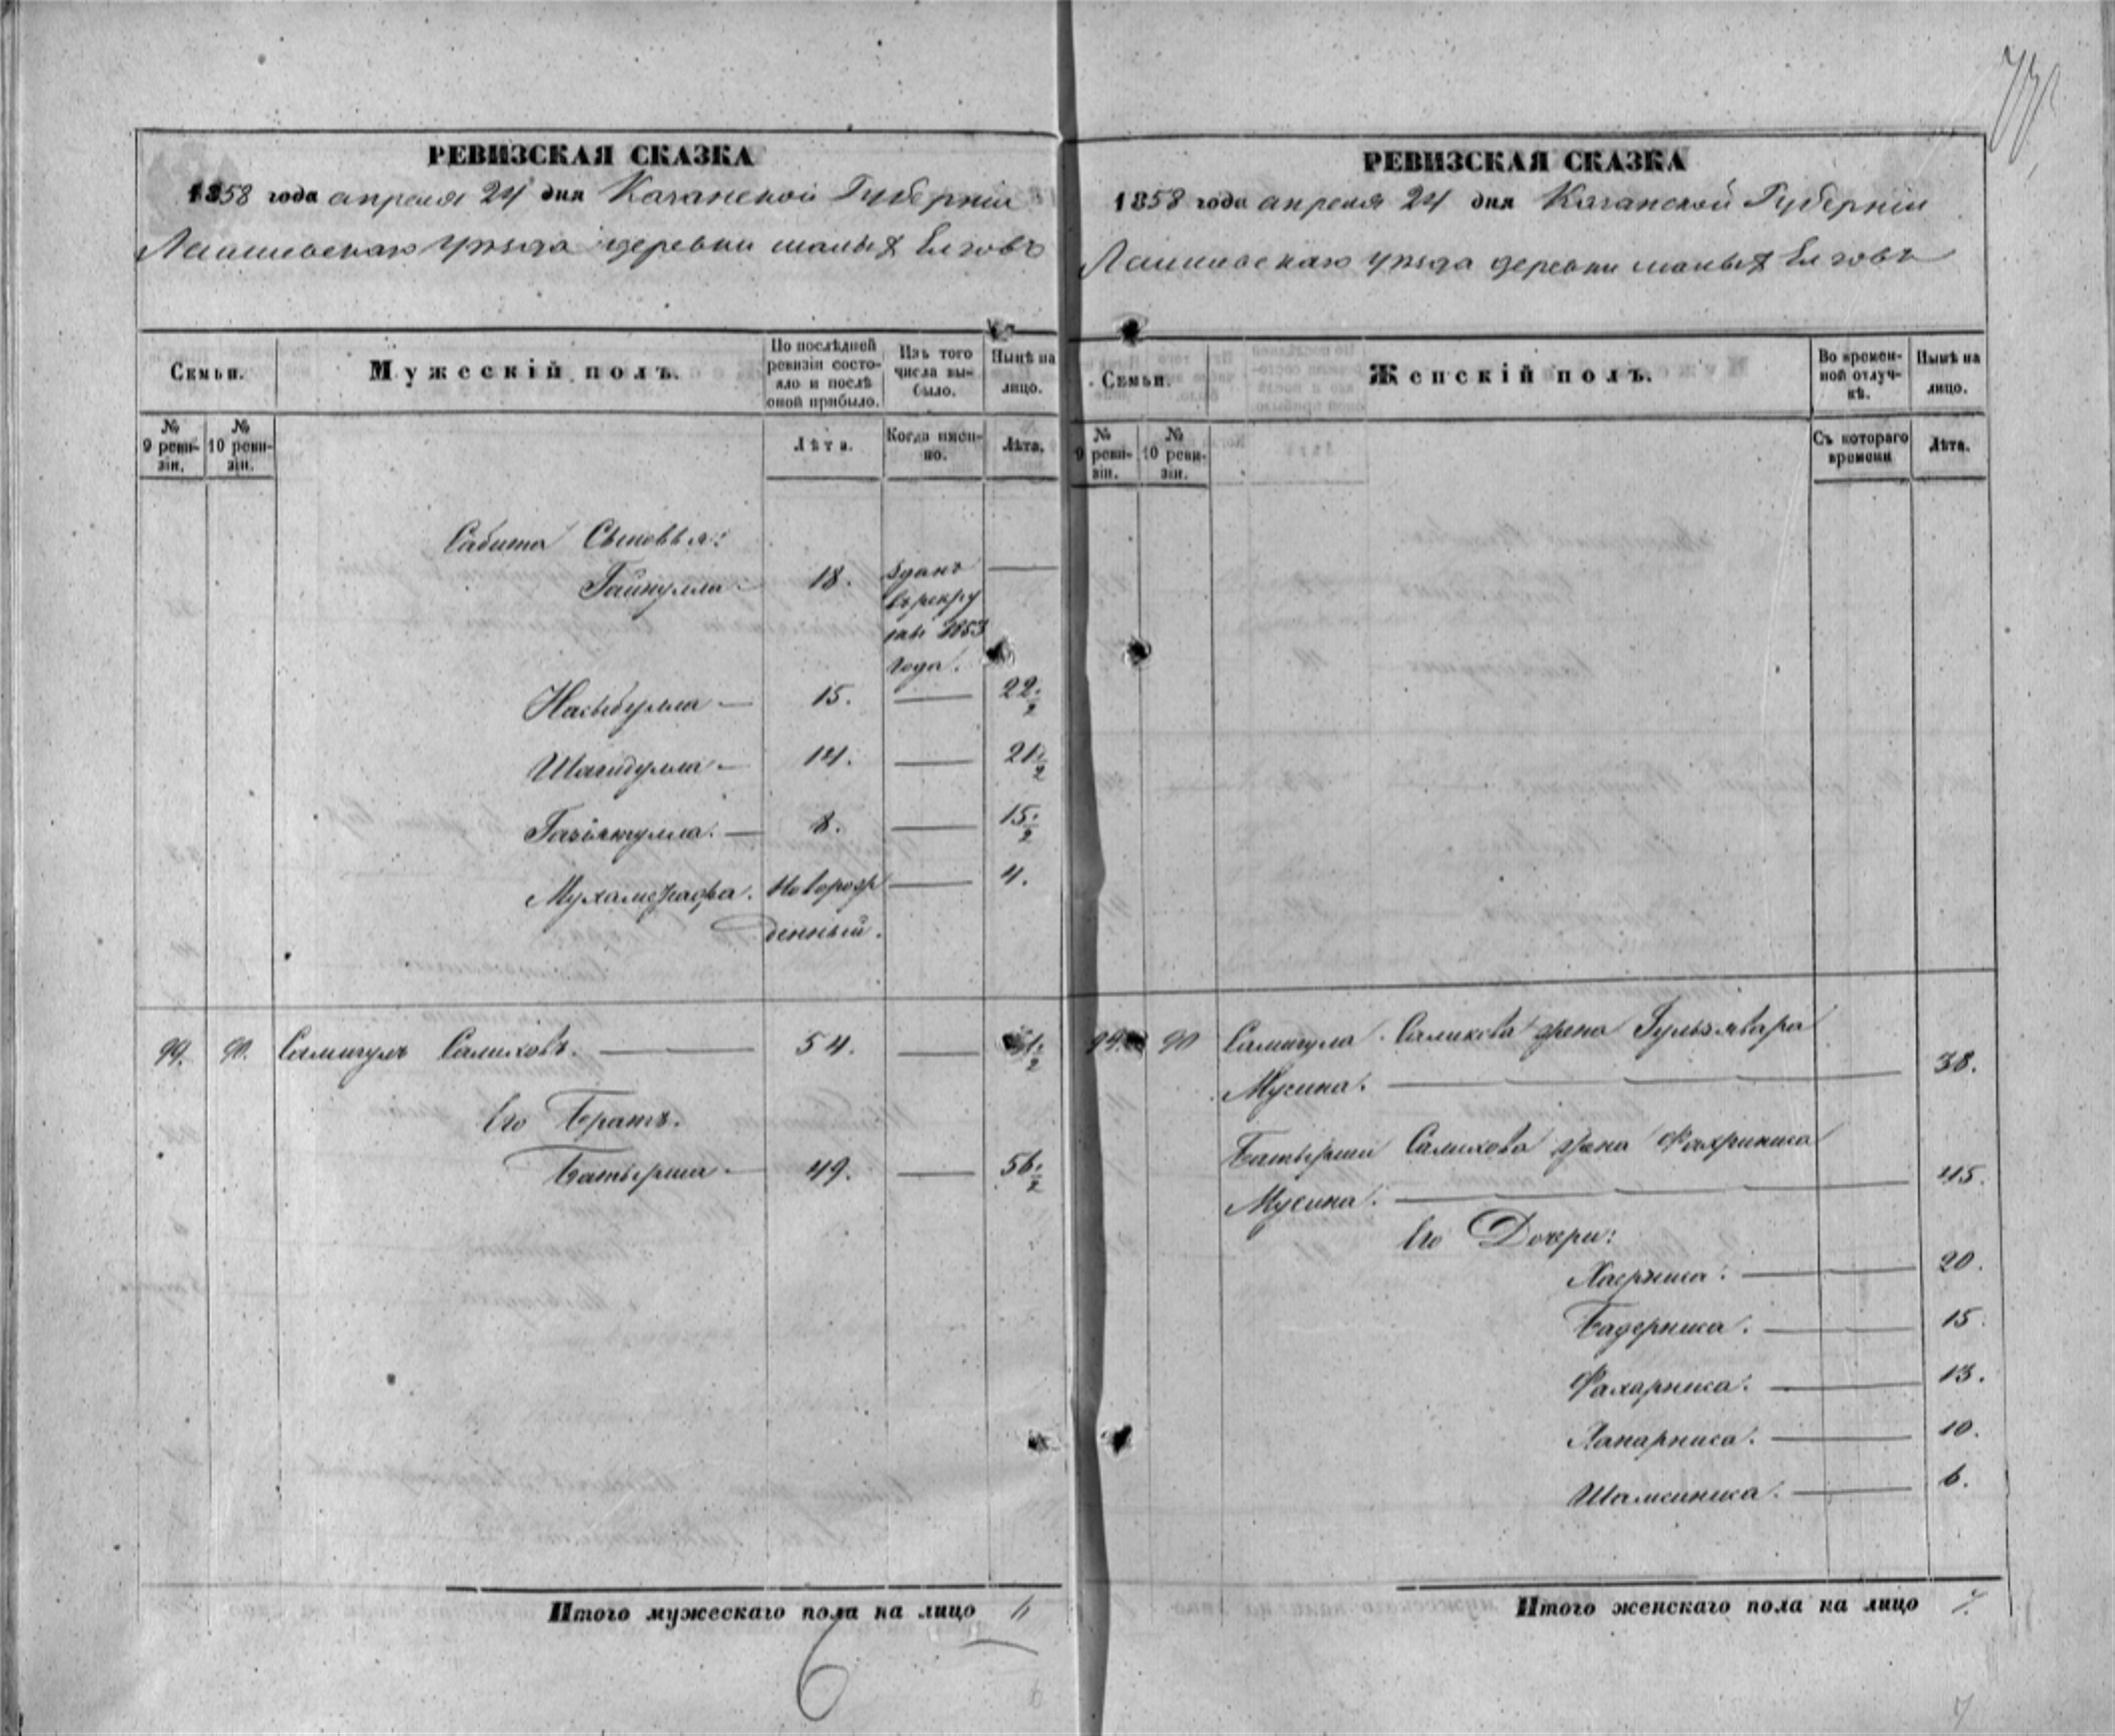 РЕВИЗСКАЯ СКАЗКА
1858 года апреля 24 дня Казанской Губерніи
Лаишевскаго уѣзда деревни малыхъ Елговъ
Семьи.
Мужескій полъ.
По послѣдней ревизіи состояло и послѣ оной прибыло.
Изъ того числа выбыло.
Нынѣ на лицо.
№ 9 ревизіи.
№ 10 ревизіи.
Лѣта.
Когда именно.
Лѣта.
Сабита Сыновья:
Гайнулла 18. Зданъ —
въ рекру
ты 1853
года.
Насыбулла — 15. — 22 1/2
Шагидулла — 14. — 21 1/2
8. — 15 1/2
Новорож — 4.
денный.
99. 90. Самигулъ Салиховъ. — 54. — 61 1/2
Его Братъ.
Батырша — 49. — 56 1/2
Итого мужескаго пола на лицо 6
6
РЕВИЗСКАЯ СКАЗКА
1858 года апреля 24 дня Казанской Губерніи
Лаишевскаго уѣзда деревни малыхъ Елговъ
Семьи.
Женскій полъ.
Во временной отлучкѣ.
Нынѣ на лицо.
№ 9 ревизіи.
№ 10 ревизіи.
Съ котораго времени
Лѣта.
99. 90 Самигула Салихова жена
Мусина. — 38.
Батырши Салихова жена Фахриниса
Мусина. — 45.
Его Дочери:
Хаерниса. — 20.
Бадерниса. — 15.
Фахарниса. — 13.
10.
Шамсиниса. — 6.
Итого женскаго пола на лицо 7.
7